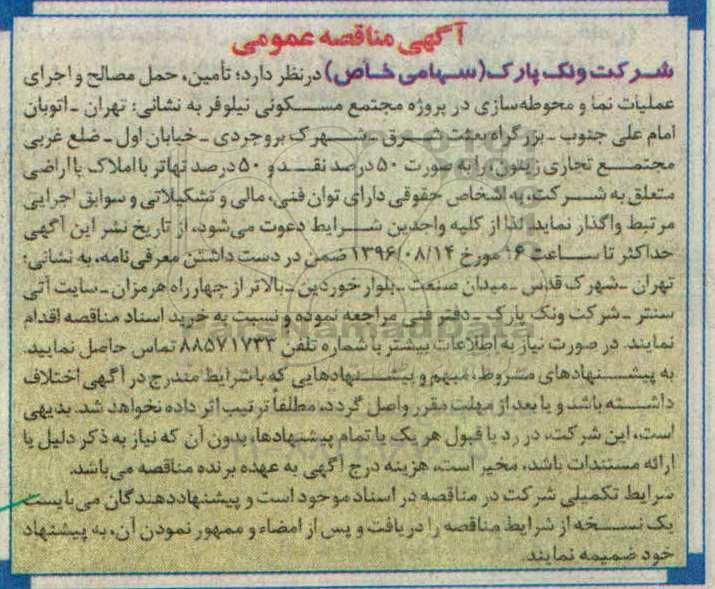 آگهی مناقصه عمومی
شرکت ونک پارک(سهامی خاص) درنظر دارد؛ تأمین، حمل مصالح و اجرای
عملیات نما و محوطه‌سازی در پروژه مجتمع مسکونی نیلوفر به نشانی: تهران ـ اتوبان
امام علی جنوب ـ بزرگراه بعثت شرق ـ شهرک بروجردی ـ خیابان اول ـ ضلع غربی
مجتمع تجاری زیتون، را به صورت ۵۰ درصد نقد و ۵۰ درصد تهاتر با املاک یا اراضی
متعلق به شرکت، به اشخاص حقوقی دارای توان فنی، مالی و تشکیلاتی و سوابق اجرایی
مرتبط واگذار نماید. لذا از کلیه واجدین شرایط دعوت می‌شود، از تاریخ نشر این آگهی
حداکثر تا ساعت ۱۶ مورخ ۱۳۹۶/۰۸/۱۴ ضمن در دست داشتن معرفی‌نامه، به نشانی:
تهران ـ شهرک قدس ـ میدان صنعت ـ بلوار خوردین ـ بالاتر از چهارراه هرمزان ـ سایت آتی
سنتر ـ شرکت ونک پارک ـ دفتر فنی مراجعه نموده و نسبت به خرید اسناد مناقصه اقدام
نمایند. در صورت نیاز به اطلاعات بیشتر با شماره تلفن ۸۸۵۷۱۷۳۳ تماس حاصل نمایید.
به پیشنهادهای مشروط، مبهم و پیشنهادهایی که با شرایط مندرج در آگهی اختلاف
داشته باشد و یا بعد از مهلت مقرر واصل گردد، مطلقاً ترتیب اثر داده نخواهد شد. بدیهی
است، این شرکت، در رد یا قبول هر یک یا تمام پیشنهادها، بدون آن که نیاز به ذکر دلیل یا
ارائه مستندات باشد، مخیر است. هزینه درج آگهی به عهده برنده مناقصه می‌باشد.
شرایط تکمیلی شرکت در مناقصه در اسناد موجود است و پیشنهاددهندگان می‌بایست
یک نسخه از شرایط مناقصه را دریافت و پس از امضاء و ممهور نمودن آن، به پیشنهاد
خود ضمیمه نمایند.
ParsNamadData